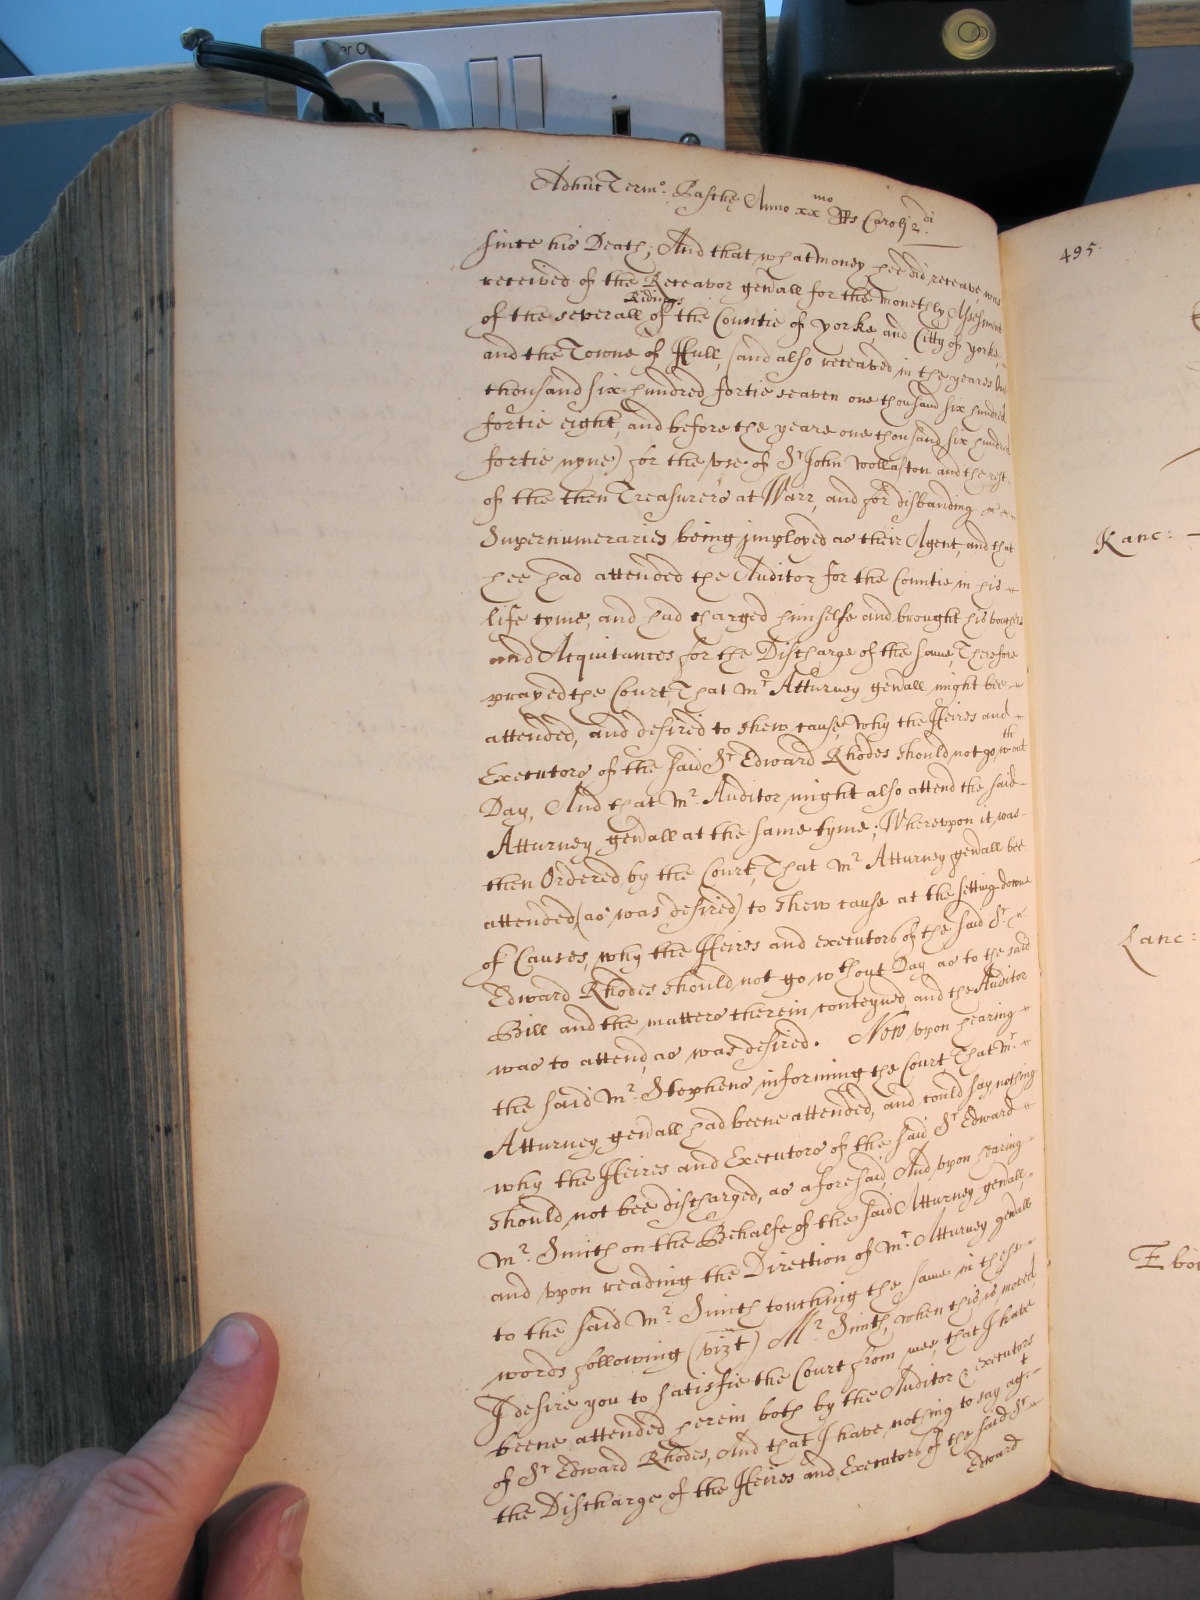 Adhuc Termo: Paschę Anno xx mo RRs Carolj 2 di.
since his Death; And that what money hee did receave, was
received of the Receavor genall for the monethly Assessment
of the severall Ridings of the Countie of yorke, and Citty of yorke,
and the Towne of Hull, (and also receaved in the yeares One
thousand six hundred fortie seaven one thousand six hundred
fortie eight, and before the yeare one thousand six hundred
fortie nyne) for the vse of Sr John Wollaston and the rest
of the then Treasurers at Warr, and for disbanding
Supernumeraries being imployed as their Agent, and that
hee had attended the Auditor for the Countie in his
life tyme, and had charged himselfe and brought his vouchers
and Acquitances for the Discharge of the same, Therefore
prayed the Court, That mr Atturney genall might bee
attended, and desired to shew cause, Why the Heires and
Executors of the said Sr Edward Rhodes should not go, wthout
Day, And that mr Auditor might also attend the said
Atturney genall at the same tyme; Wherevpon it was
then Ordered by the Court, That mr Atturney genall bee
attended (as was desired) to shew cause at the setting downe
of Causes, why the Heires and executors of the said Sr
Edward Rhodes should not go wthout Day as to the said
Bill and the matters therein conteyned, and the Auditor
was to attend, as was desired. Now vpon hearing
the said mr Stephens informing the Court That mr
Atturney genall had beene attended, and could say nothing
why the Heires and Executors of the said Sr Edward
should not bee discharged, as aforesaid, And vpon hearing
mr Smith on the Behalfe of the said Atturney genall,
and vpon reading the Direction of mr Atturney genall
to the said mr Smith touching the same in these
words following (vizt) Mr Smith, when this is moved
I desire you to satisfie the Court from mee, that I have
beene attended herein both by the Auditor & executors
of Sr Edward Rhodes, And that I have nothing to say agt
the Discharge of the Heires and Executors of the said Sr
Edward
495.
Kanc:
Lanc:
Ebo